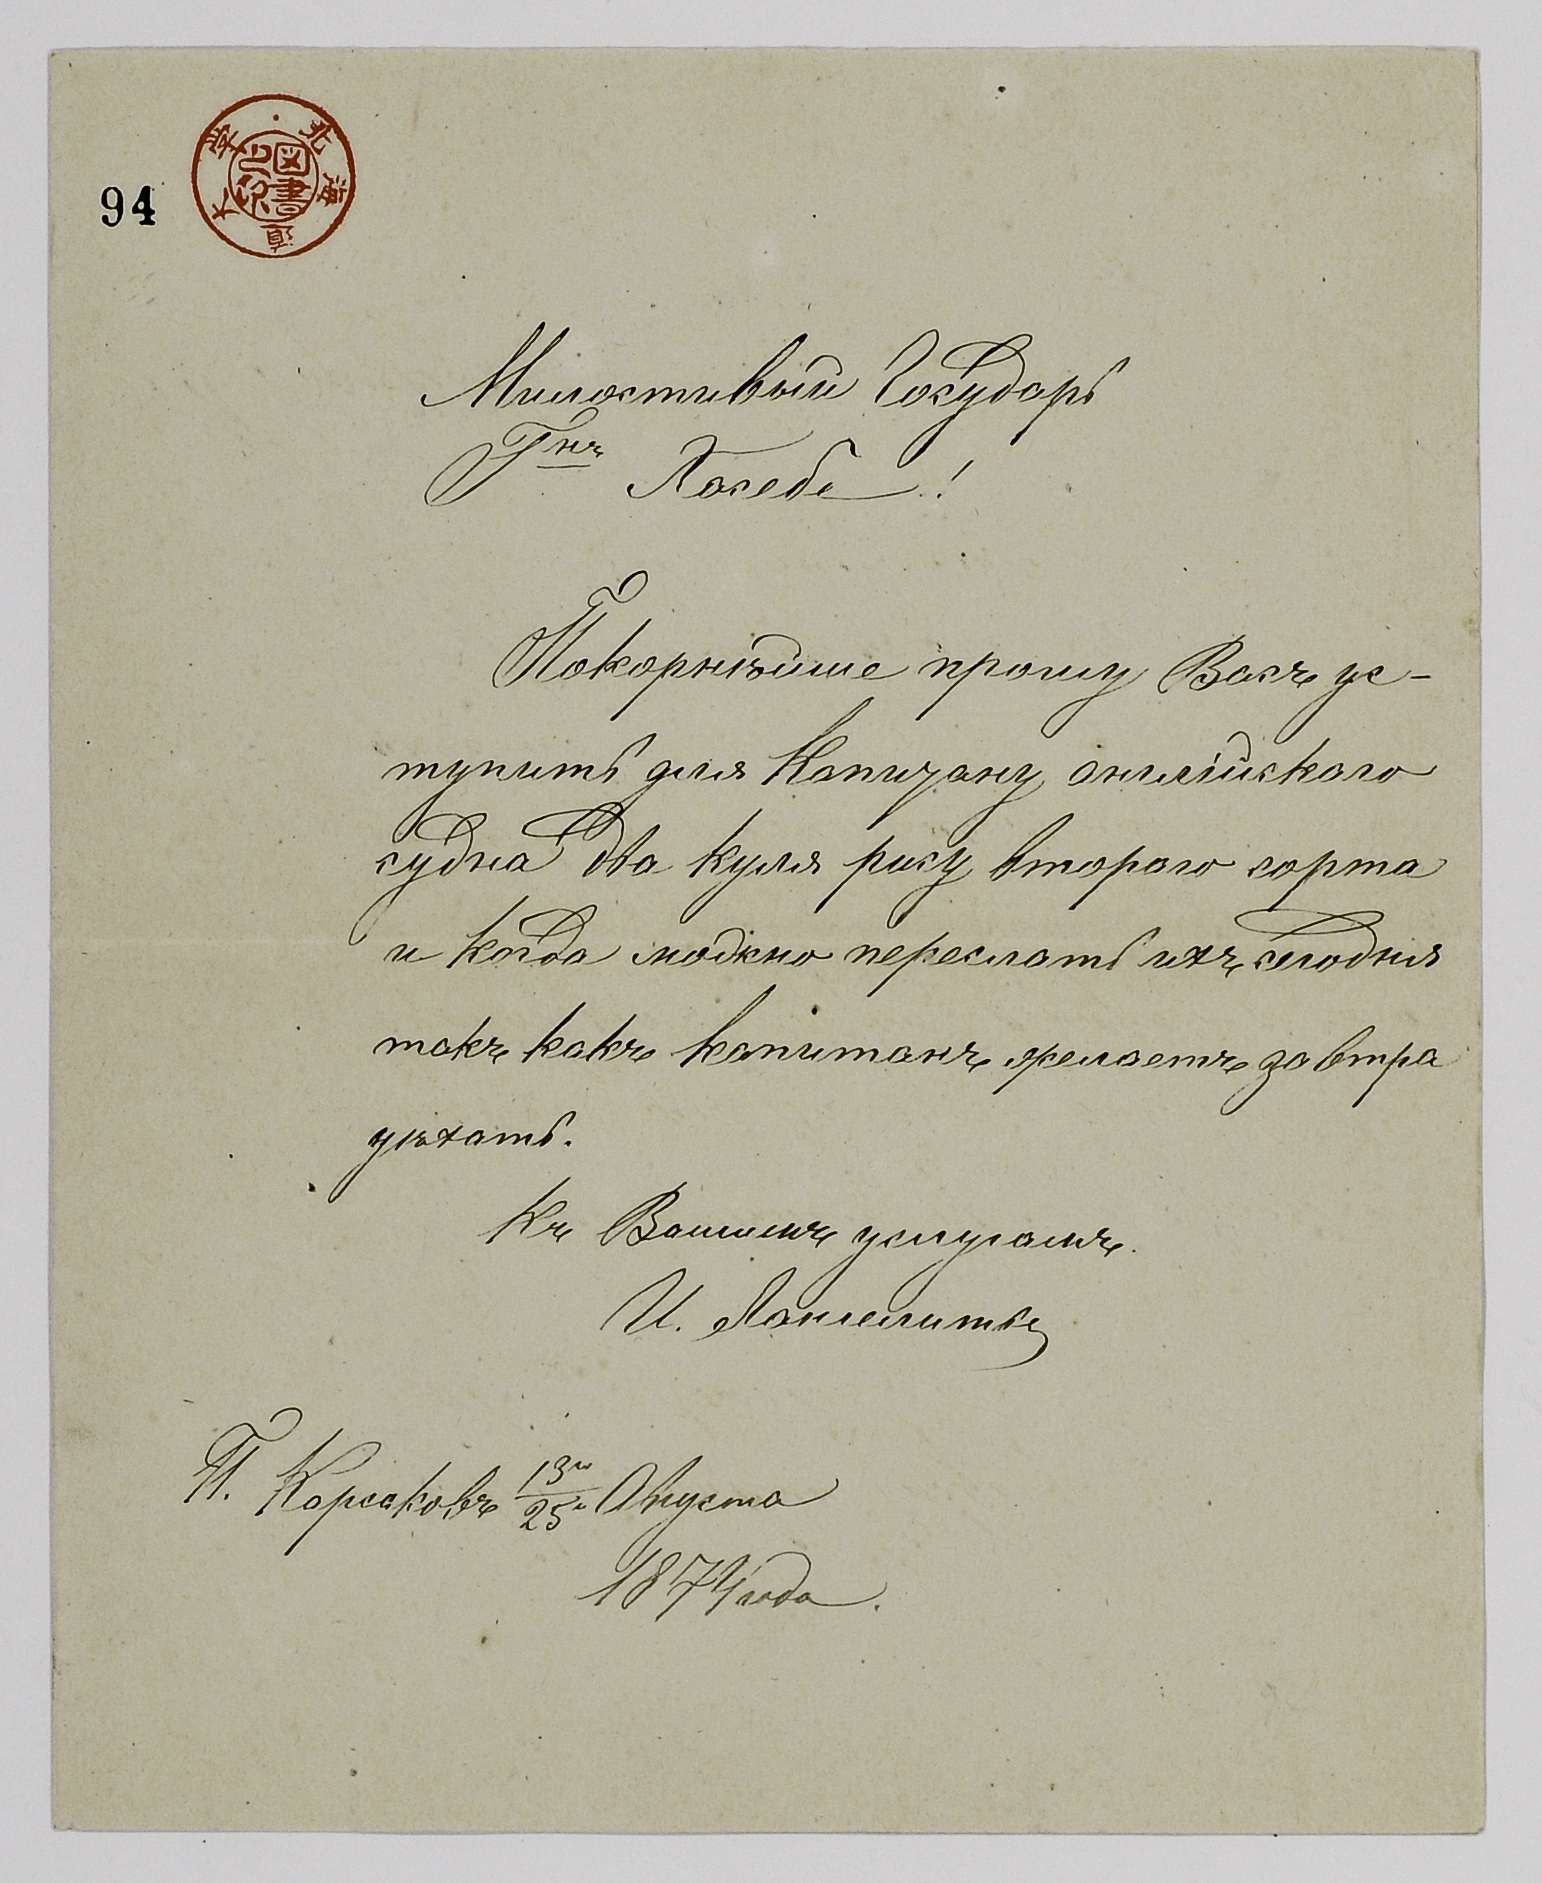 94
北海道大学
図書之印
Милостивый Государь
Гнъ Хасебе!
Покорнѣйше прошу Васъ ус-
тупить для Капитану англійскаго
судна два куля рису втораго сорта
и когда можно переслать ихъ сегодня
такъ какъ капитанъ желаетъ завтра
уѣхать.
Къ Вашимъ услугамъ.
И.
П. Корсаковъ 13го/25го Августа
1874 года.